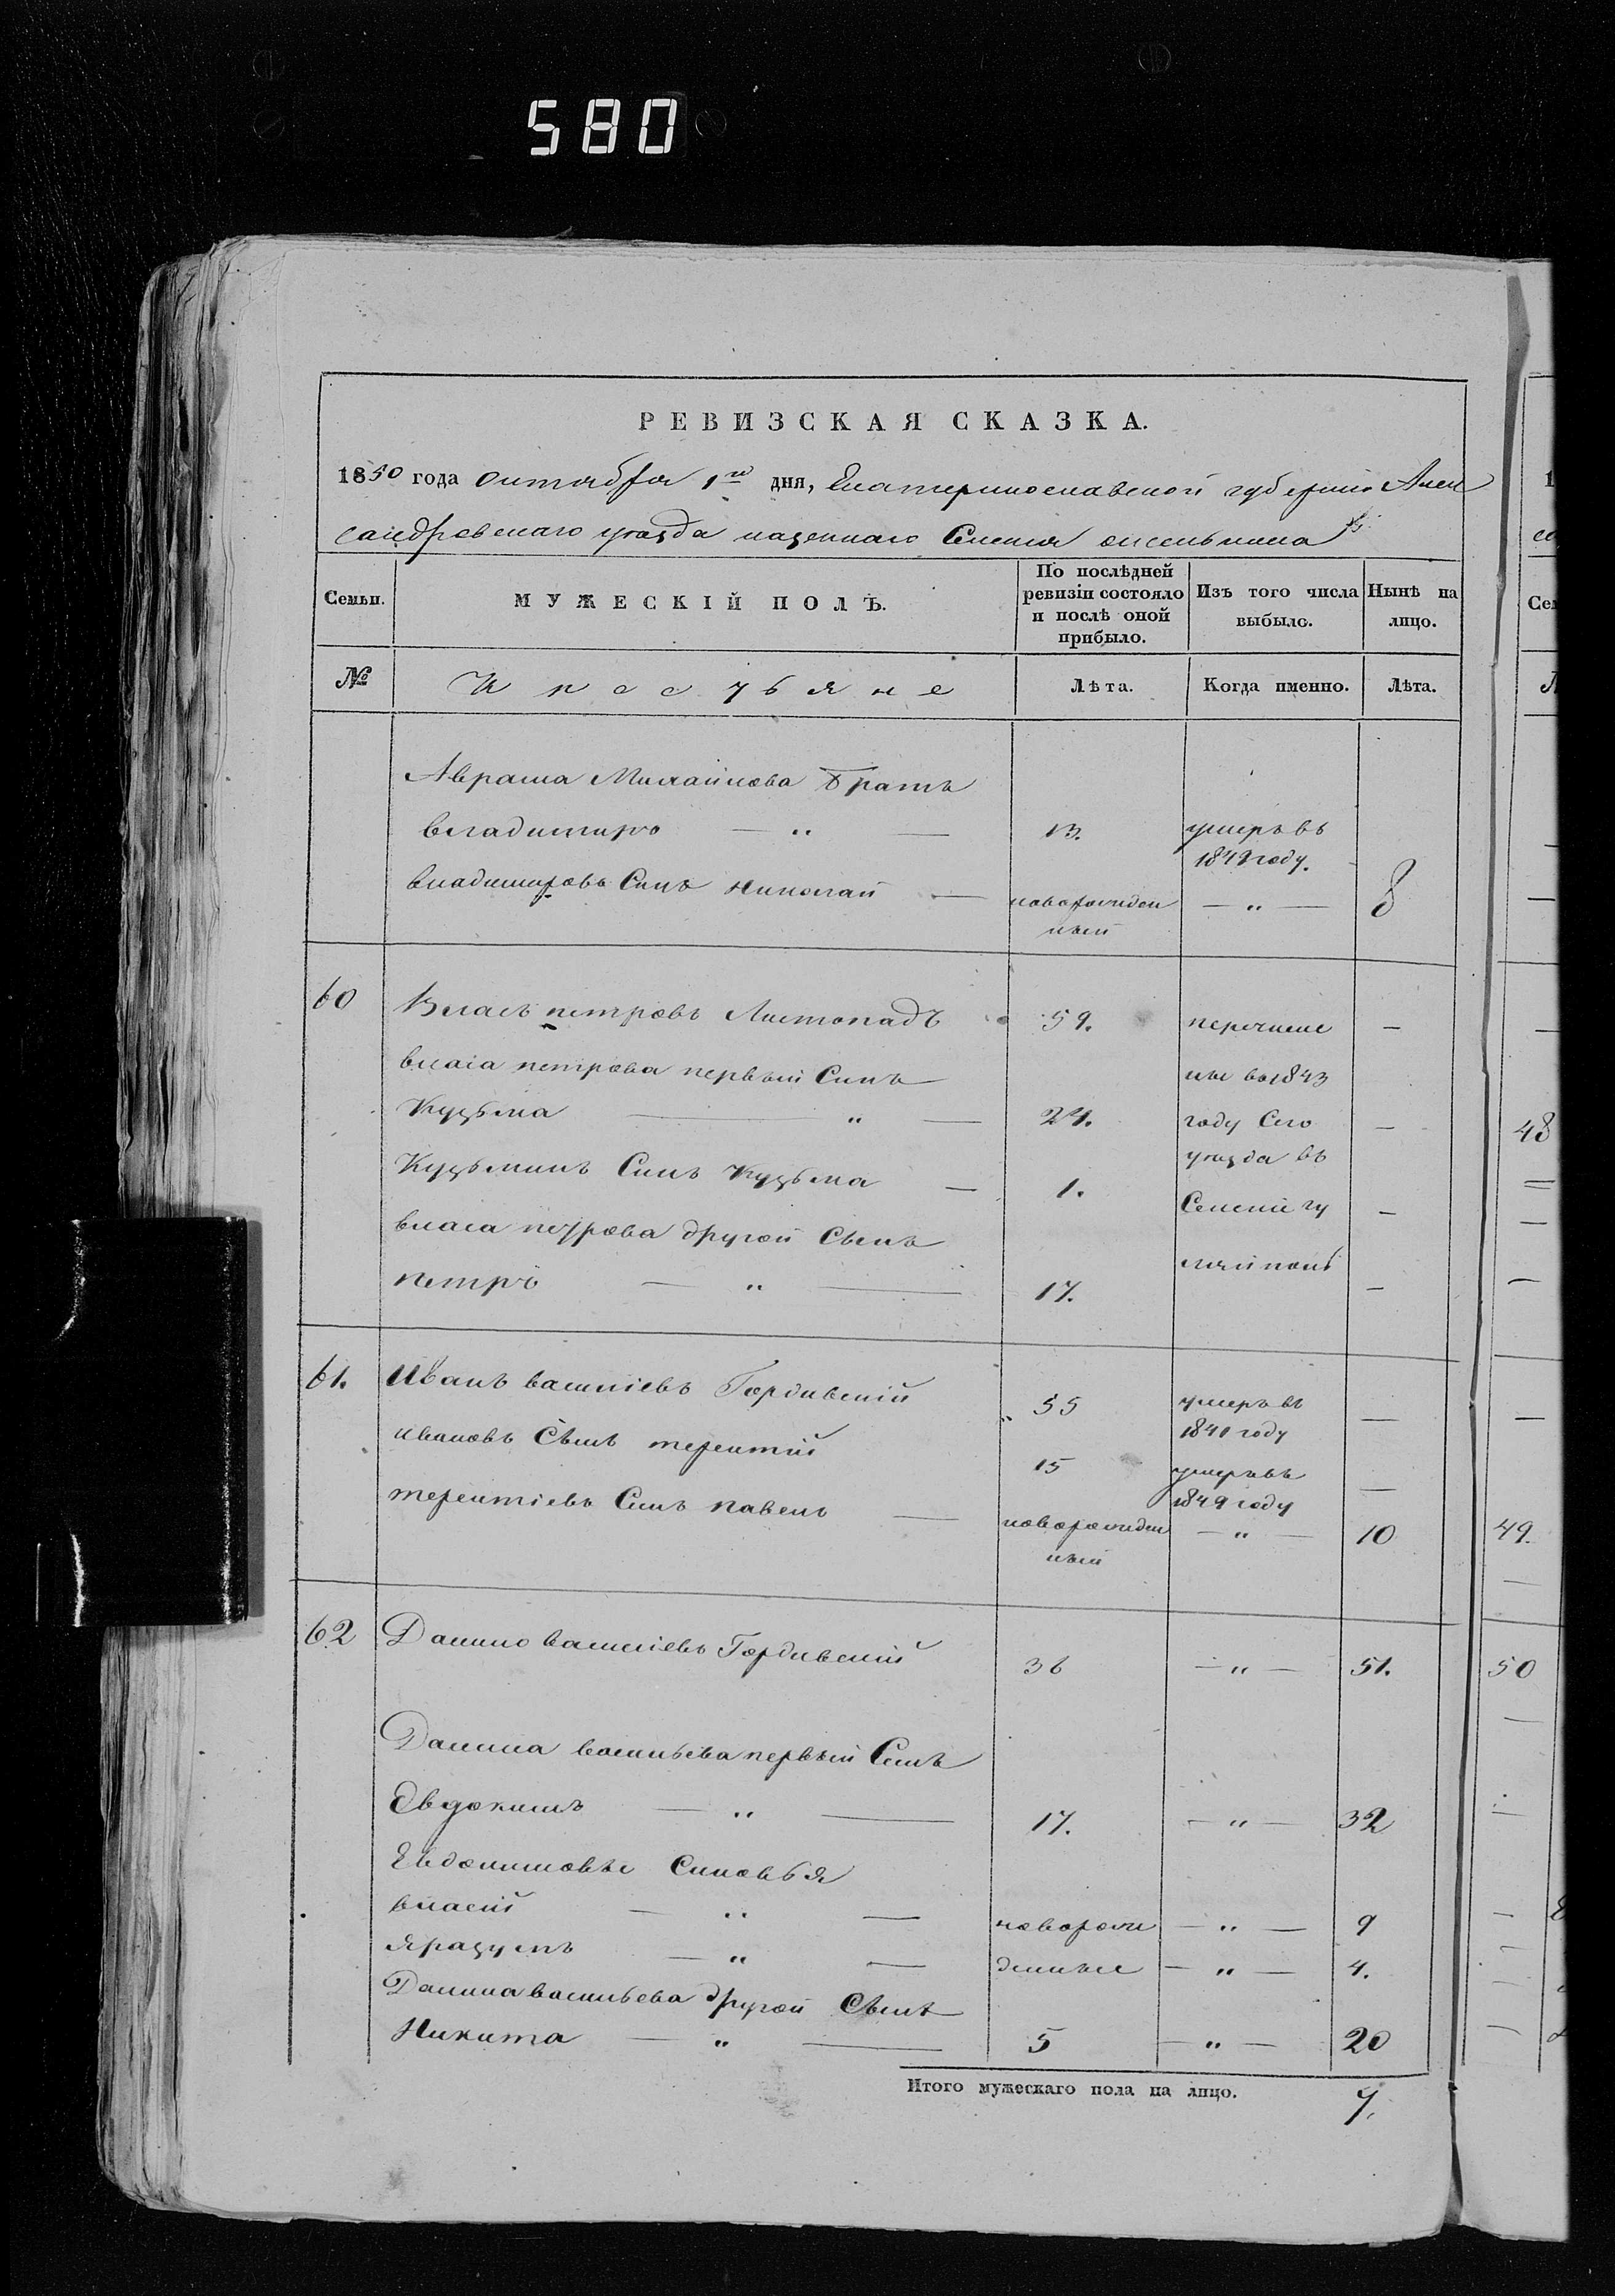 580
РЕВИЗСКАЯ СКАЗКА.
1850 года октября 1го дня, Екатеринославской губернiи Алек
сандровскаго уезда казеннаго Селенiя
Семьи. МУЖЕСКIЙ ПОЛЪ. По послѣдней ревизiи состояло и послѣ оной прибыло. Изъ того числа выбыло. Нынѣ на лицо.
№ Крестьяне Лѣта. Когда именно. Лѣта.
Аврама Михайлова братъ
владимиръ — " — 13. умеръ въ
1849 году.
владимировъ Синъ николай — новорожден — " — 8
ный
60 Власъ петровъ Листопадъ 59. перечисле —
власа петрова первый Синъ ны во 1843
Кузьма — " — 24. году Сего —
уезда въ
Кузьминъ Синъ Кузьма — 1. Селенiе гу —
власа петрова другой Сынъ ляйполь
петръ — " — 17. —
61. Иванъ василiевъ Гордивскiй 55 умеръ въ —
1841 году
ивановъ Сынъ терентiй 15 умеръ въ —
1849 году
терентiевъ Синъ павелъ — новорожден — " — 10
ный
62 Данило василiевъ Гордивскiй 36 — " — 51.
Данила васильева первый Синъ
Евдокимъ — " — 17. — " — 32
Евдокимовы Синовья
власiй — " — новорож — " — 9
— " — денные — " — 4.
Данила васильева другой Сынъ
Никита — " — 5 — " — 20
Итого мужескаго пола на лицо. 7.
48
49.
50